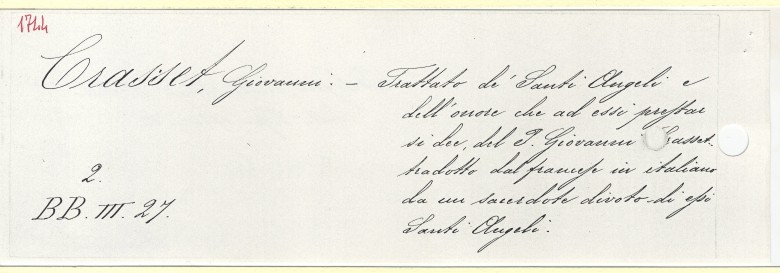 1744
Crasset, Giovanni. - Trattato de' Santi Angeli e
dell'onore che ad essi prestar
si dee, del P. Giovanni Crasset-
tradotto dal francese in italiano
da un sacerdote divoto di essi
Santi Angeli.
2.
BB. III. 27.